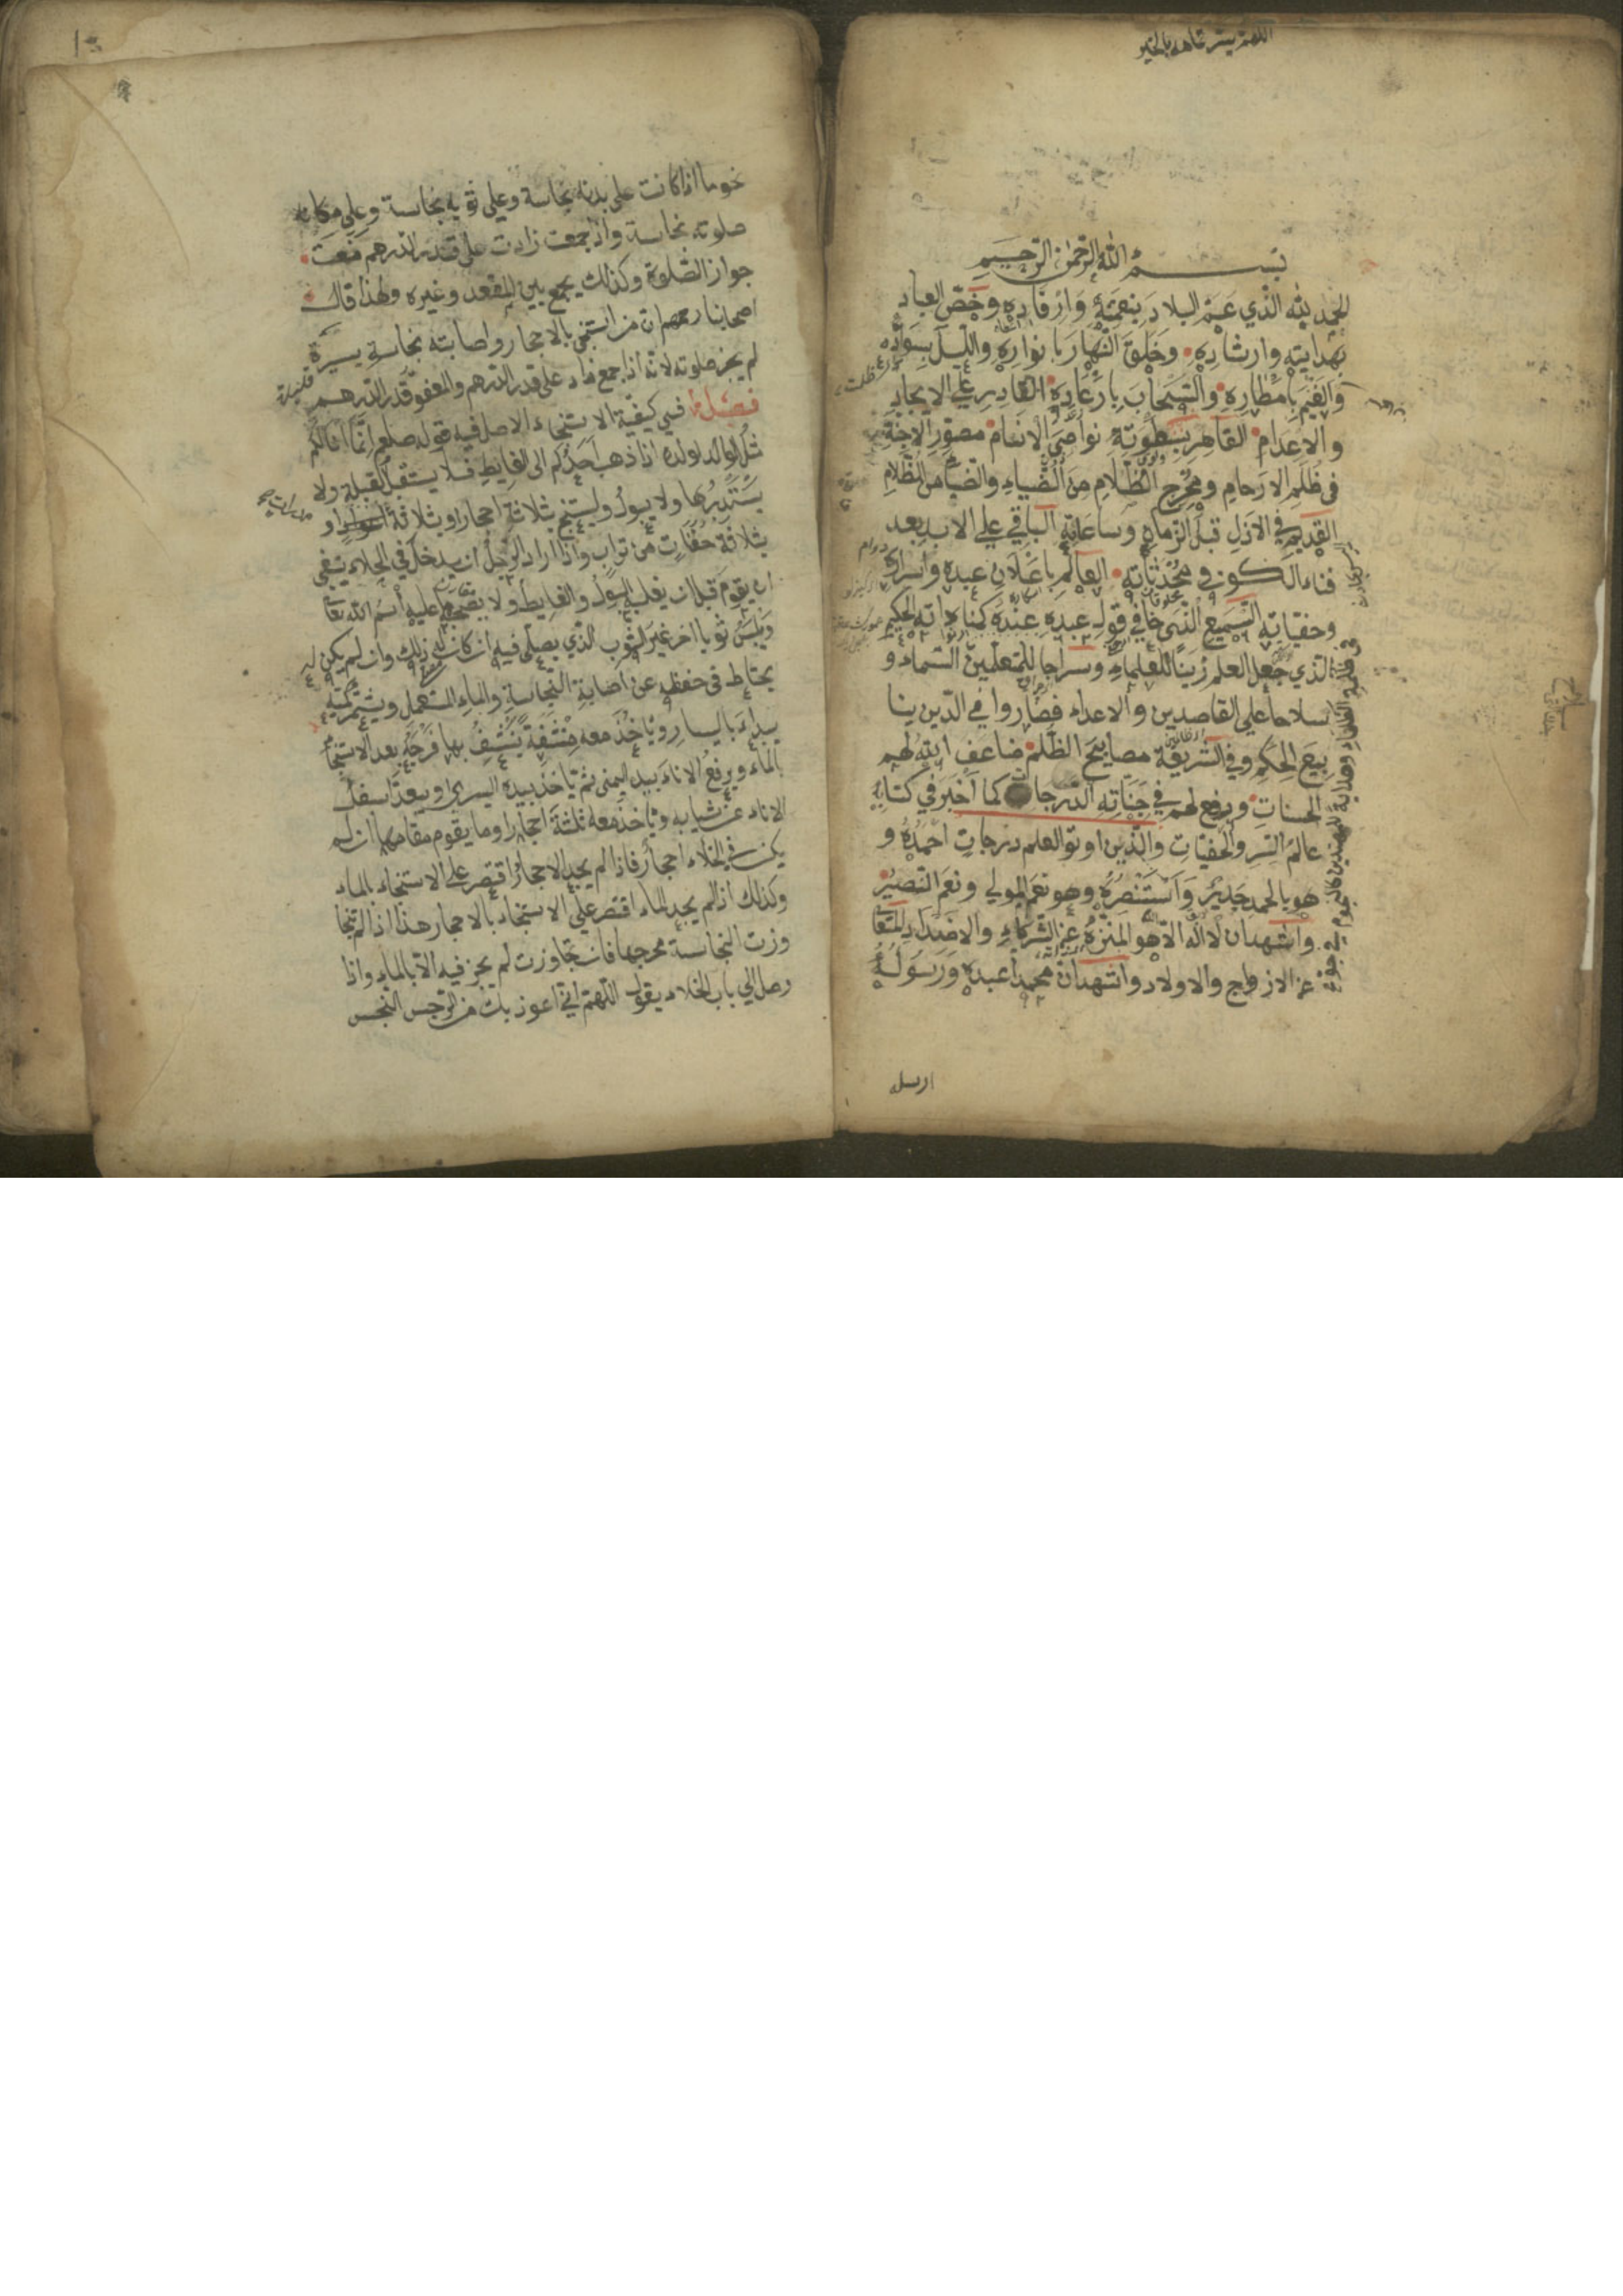 اللهم يسر تمامه بالخير
بسم الله الرحمن الرحيم
الحمد لله الذي عم البلاد بنعمته وارفاده وخص العباد
بهدايته وارشاده وخلق النهار بانواره والليل بسواده
والغيم بامطاره والسحاب بارعاده القادر على الايجاد
والاعدام القاهر بسطوته نواصي الانعام مصور الاجنة
في ظلم الارحام ومخرج الظلام من الضياء والضياء من الظلام
القديم في الازل قبل الزمان وساعاته الباقي على الابد بعد
فناء الكون ومحدثاته العالم باعلان عبده واسراره
وخفياته السميع النهى خافي قول عبده عنده كناياته الحكيم
الذي جعل العلم زينا للعلماء وسراجا للمتعلمين السماء و
سلاحا على القاصدين والاعداء فصاروا في الدين ينا
بيع الحكم وفي الشريعة مصابيح الظلم ضاعف الله لهم
الحسنات ورفع لهم في جناته الدرجات كما اخبر في كتابه
عالم السر والخفيات والذين اوتوا العلم درجات احمده و
هو بالحمد جدير واستنصره وهو نعم المولى ونعم النصير
واشهد ان لا اله الا هو المنزه عن الشركاء والاضداد المتعا
عن الازواج والاولاد واشهد ان محمدا عبده ورسوله
ارسله
خوما اذا كانت على بدنه نجاسة وعلى ثوبه نجاسة وعلى مكان
صلوته نجاسة واذا جمعت زادت على قدر الدرهم منعت
جواز الصلوة وكذلك يجمع بين المقعد وغيره ولهذا قال
اصحابنا رحمهم ان من استنجى بالاحجار واصابته نجاسة يسيرة
لم يجز صلوته لانه اذا جمع زاد على قدر الدرهم والعفو قدر الدرهم
فصل في كيفية الاستنجاء الاصل فيه قوله صلعم انما انا لكم
مثل الوالد لولده اذا ذهب احدكم الى الغايط فلا يستقبل القبلة ولا
يستدبرها ولا يبول وليستنج بثلاثة احجار او بثلاثة اعواد او
بثلاثة حفنات من تراب واذا اراد الرجل ان يدخل في الخلاء ينبغي
ان يقوم قبل ان يغلبه البول والغايط ولا يصحبه عليه اسم الله تعا
ويلبس ثوبا اخر غير الثوب الذي يصلى فيه ان كان له ذلك وان لم يكن له
يحتاط في حفظه عن اصابة النجاسة والماء المستعمل ويشمر كميه
يبداء باليسار وياخذ معه منشفة ينشف بها فرجه بعد الاستنجا
بالماء ويرفع الاناء بيد اليمنى ثم ياخذ بيده اليسرى ويبعد اسفل
الاناء عن ثيابه وياخذ معه ثلثة احجار او ما يقوم مقامها ان لم
يكن في الخلاء احجار فاذا لم يجد الاحجار اقتصر على الاستنجاء بالماء
وكذلك اذا لم يجد الماء اقتصر على الاستنجاء بالاحجار هذا اذا لم تتجا
وزت النجاسة مخرجها فان تجاوزت لم يجز فيه الا بالماء واذا
وصل الى باب الخلاء يقول اللهم اني اعوذ بك من الرجس النجس